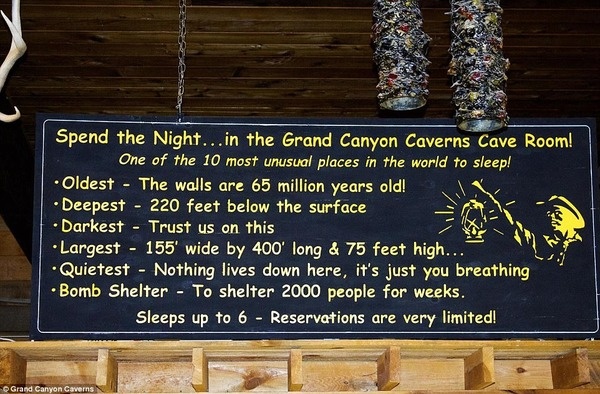 Spend the Night...in the Grand Canyon Caverns Cave Room!
One of the 10 most unusual places in the world to sleep!
·Oldest - The walls are 65 million years old!
·Deepest - 220 feet below the surface
·Darkest - Trust us on this
·Largest - 155' wide by 400' long & 75 feet high...
·Quietest - Nothing lives down here, it's just you breathing
·Bomb Shelter - To shelter 2000 people for weeks.
Sleeps up to 6 - Reservations are very limited!
© Grand Canyon Caverns